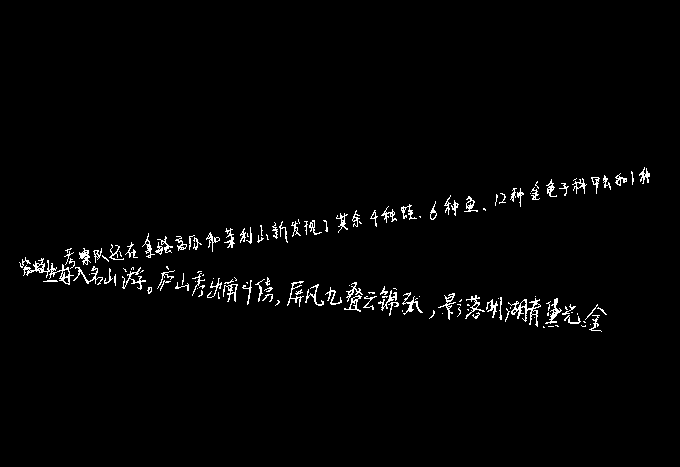 考察队还在拿骚高原和莱利山新发现了其余4种蛙、6种鱼、12种金龟子科甲虫和1种
好入名山游。庐山秀出南斗傍,屏风九叠云锦张,影落明湖青黛光金